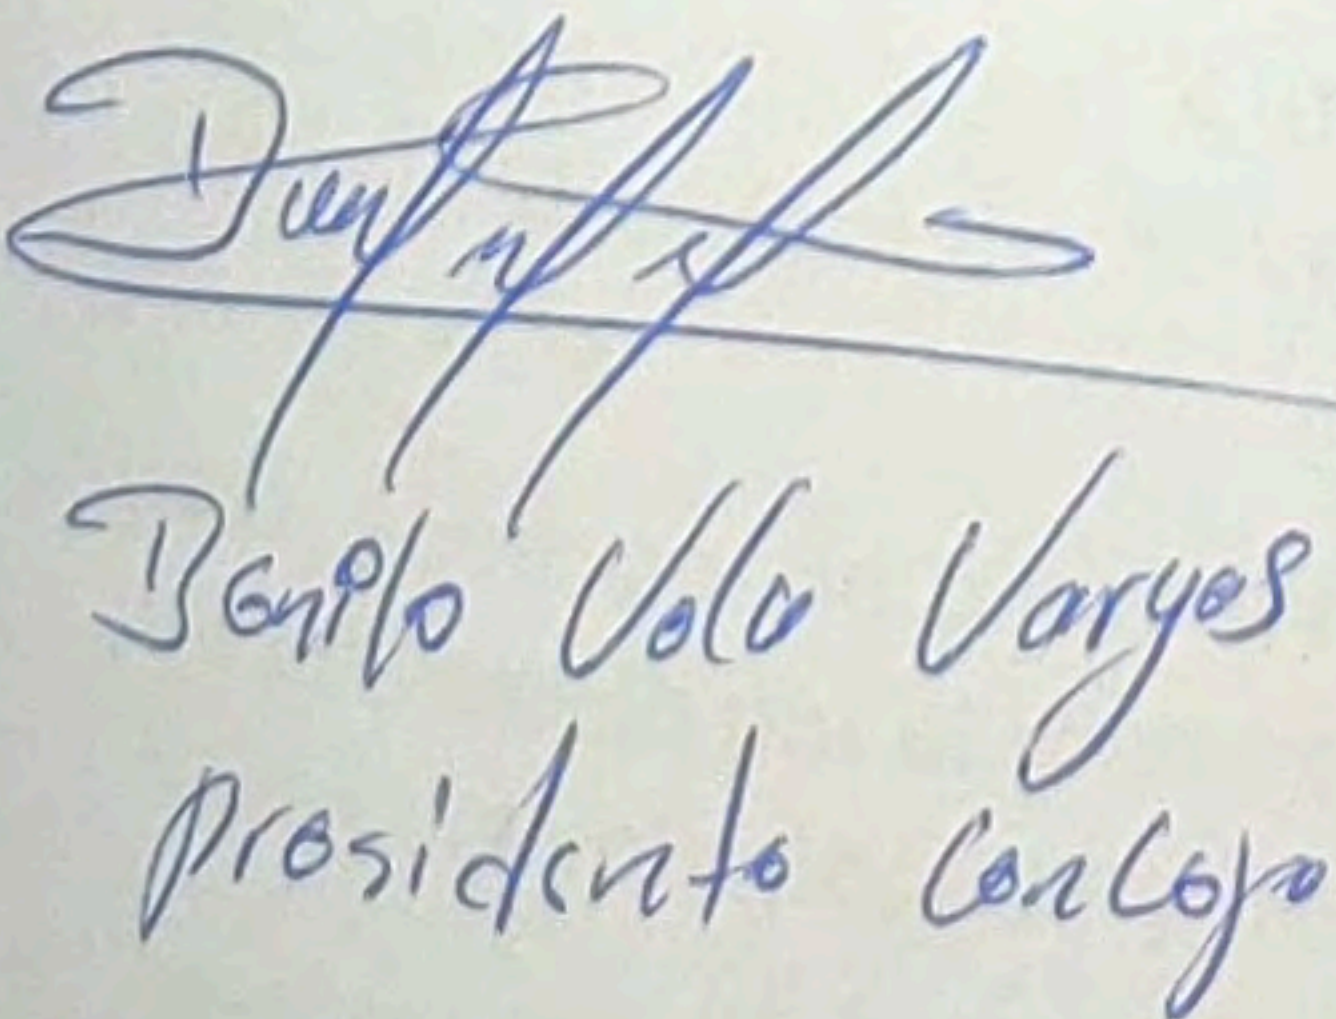 Danilo Vola Vargas
presidente Concejo